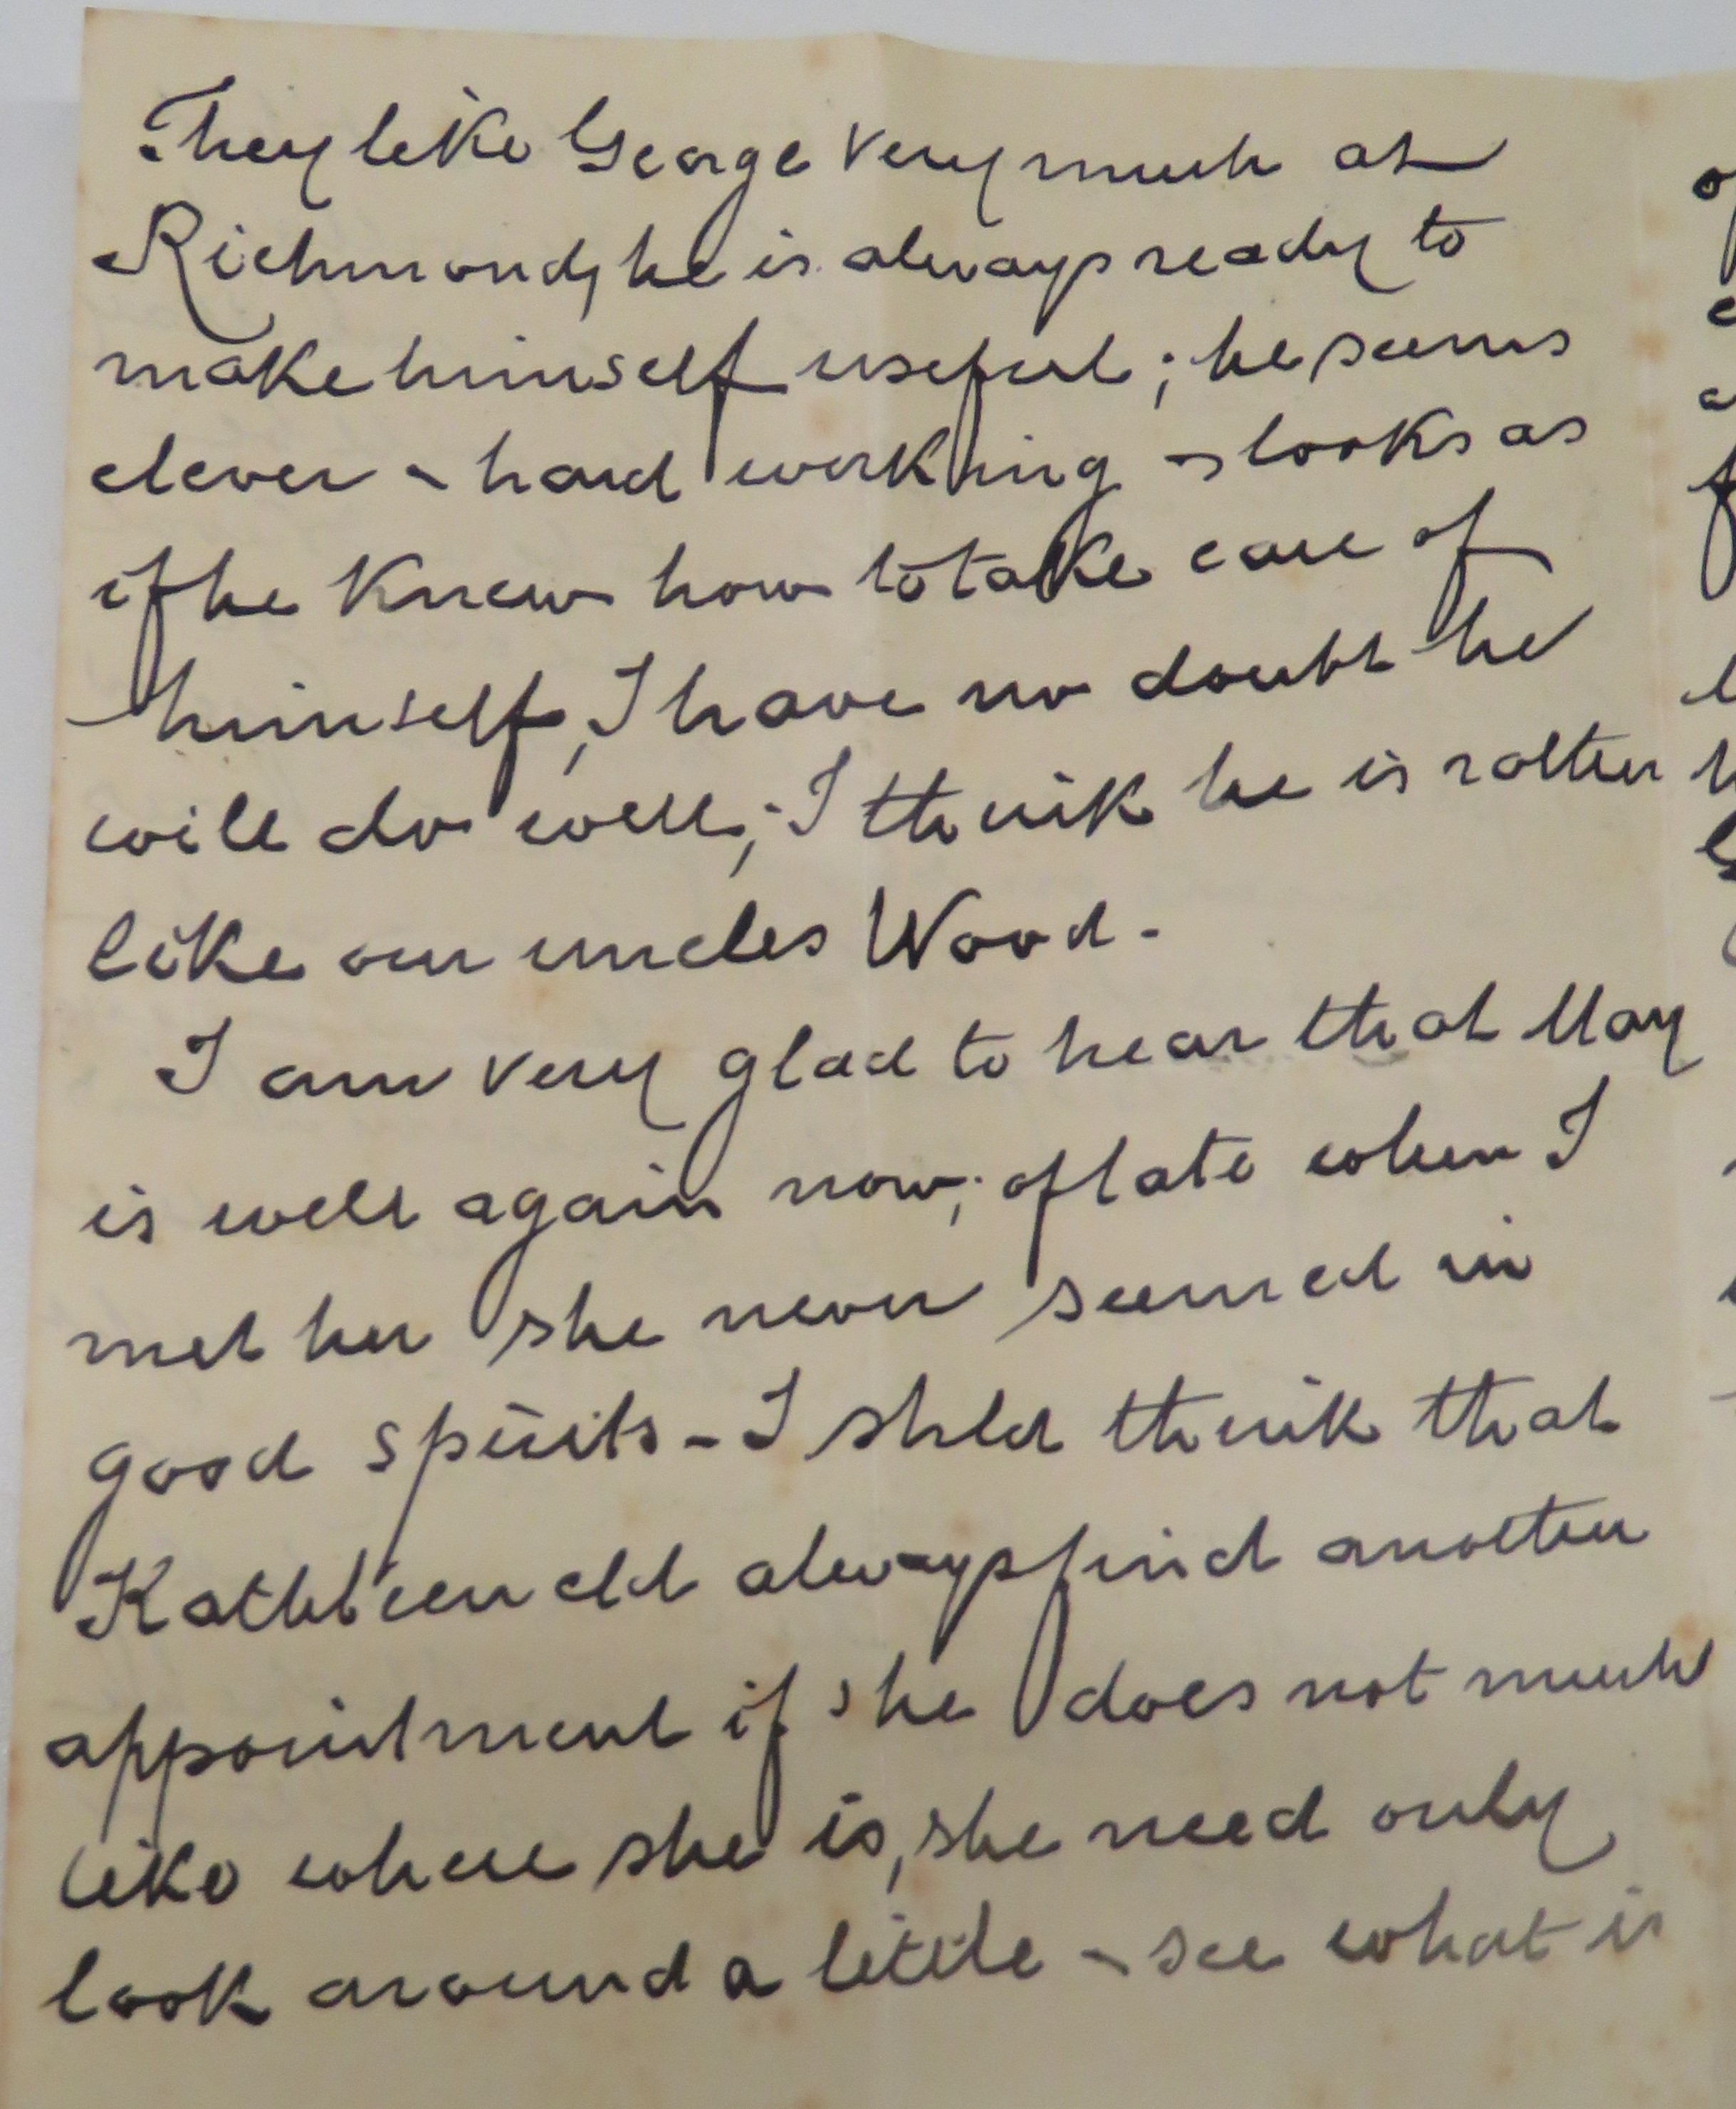 They like George very much at
Richmond, he is always ready to
make himself useful; he seems
clever & hard working & looks as
if he knew how to take care of
himself, I have no doubt he
will do well; I think he is rather
like our uncles Wood.
I am very glad to hear that May
is well again now; of late when I
met her she never seemed in
good spirits - I shld think that
Kathleen cld always find another
appointment if she does not much
like where she is, she need only
look around a little & see what is